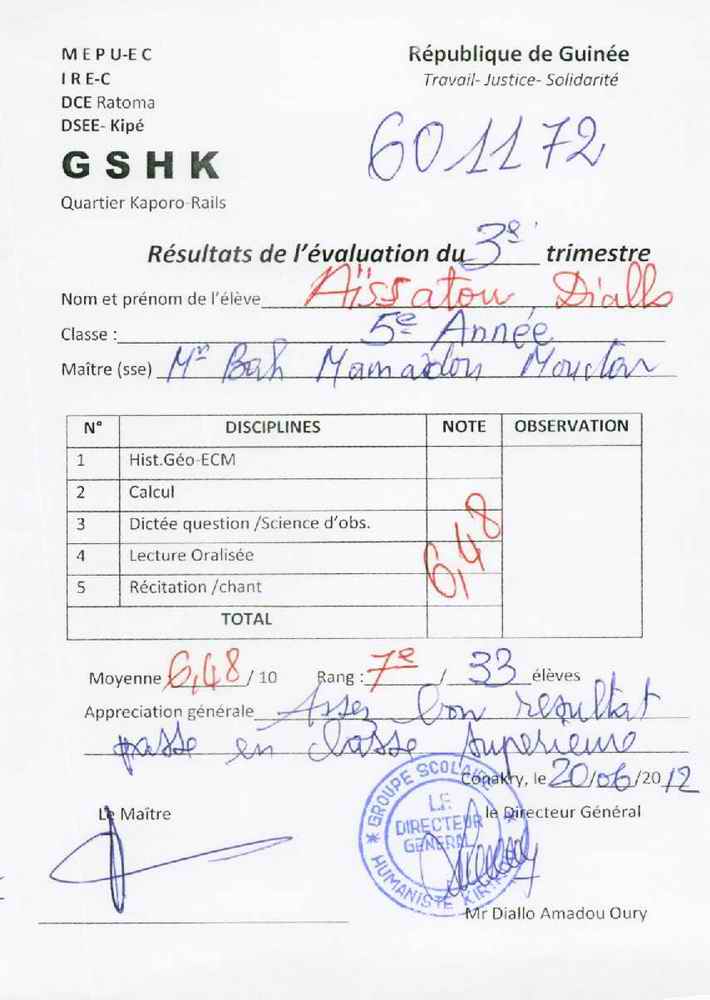 M E P U-E C
I R E-C
DCE Ratoma
DSEE- Kipé
G S H K
Quartier Kaporo-Rails
République de Guinée
Travail- Justice- Solidarité
601172
Résultats de l'évaluation du 3e trimestre
Nom et prénom de l'élève Aïssatou Diallo
Classe : 5e Année
Maître (sse) Mr Bah Mamadou Mouctar
N° DISCIPLINES NOTE OBSERVATION
1 Hist.Géo-ECM
2 Calcul
3 Dictée question /Science d'obs.
4 Lecture Oralisée
5 Récitation /chant
6,48
TOTAL
Moyenne 6,48 / 10 Rang : 7e / 33 élèves
Appreciation générale Assez bon resultat
passe en classe superieure
Conakry, le 20/06/2012
Le Maître
le Directeur Général
GROUPE SCOLAIRE
LE DIRECTEUR GENERAL
HUMANISTE
Mr Diallo Amadou Oury